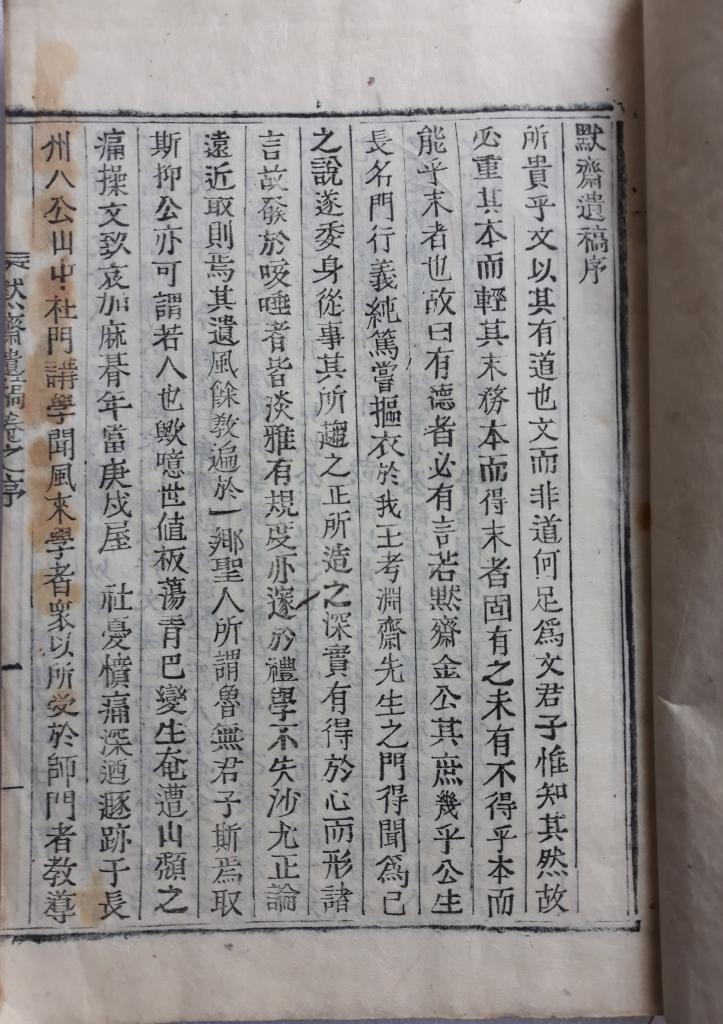 默齋遺稿序
所貴乎文以其有道也文而非道何足爲文君子惟知其然故
必重其本而輕其末務本而得末者固有之未有不得乎本而
能乎末者也故曰有德者必有言若默齋金公其庶幾乎公生
長名門行義純篤嘗摳衣於我王考淵齋先生之門得聞爲己
之說遂委身從事其所趨之正所造之深實有得於心而形諸
言故發於咳唾者皆淡雅有規度亦邃於禮學不失沙尤正論
遠近取則焉其遺風餘敎遍於一鄕聖人所謂魯無君子斯焉取
斯抑公亦可謂若人也歟噫世値板蕩靑巴變生奄遭山頹之
痛操文致哀加麻朞年當庚戌屋 社憂憤痛深遁跡于長
州八公山中杜門講學聞風來學者衆以所受於師門者教導
默齋遺稿卷之序
一